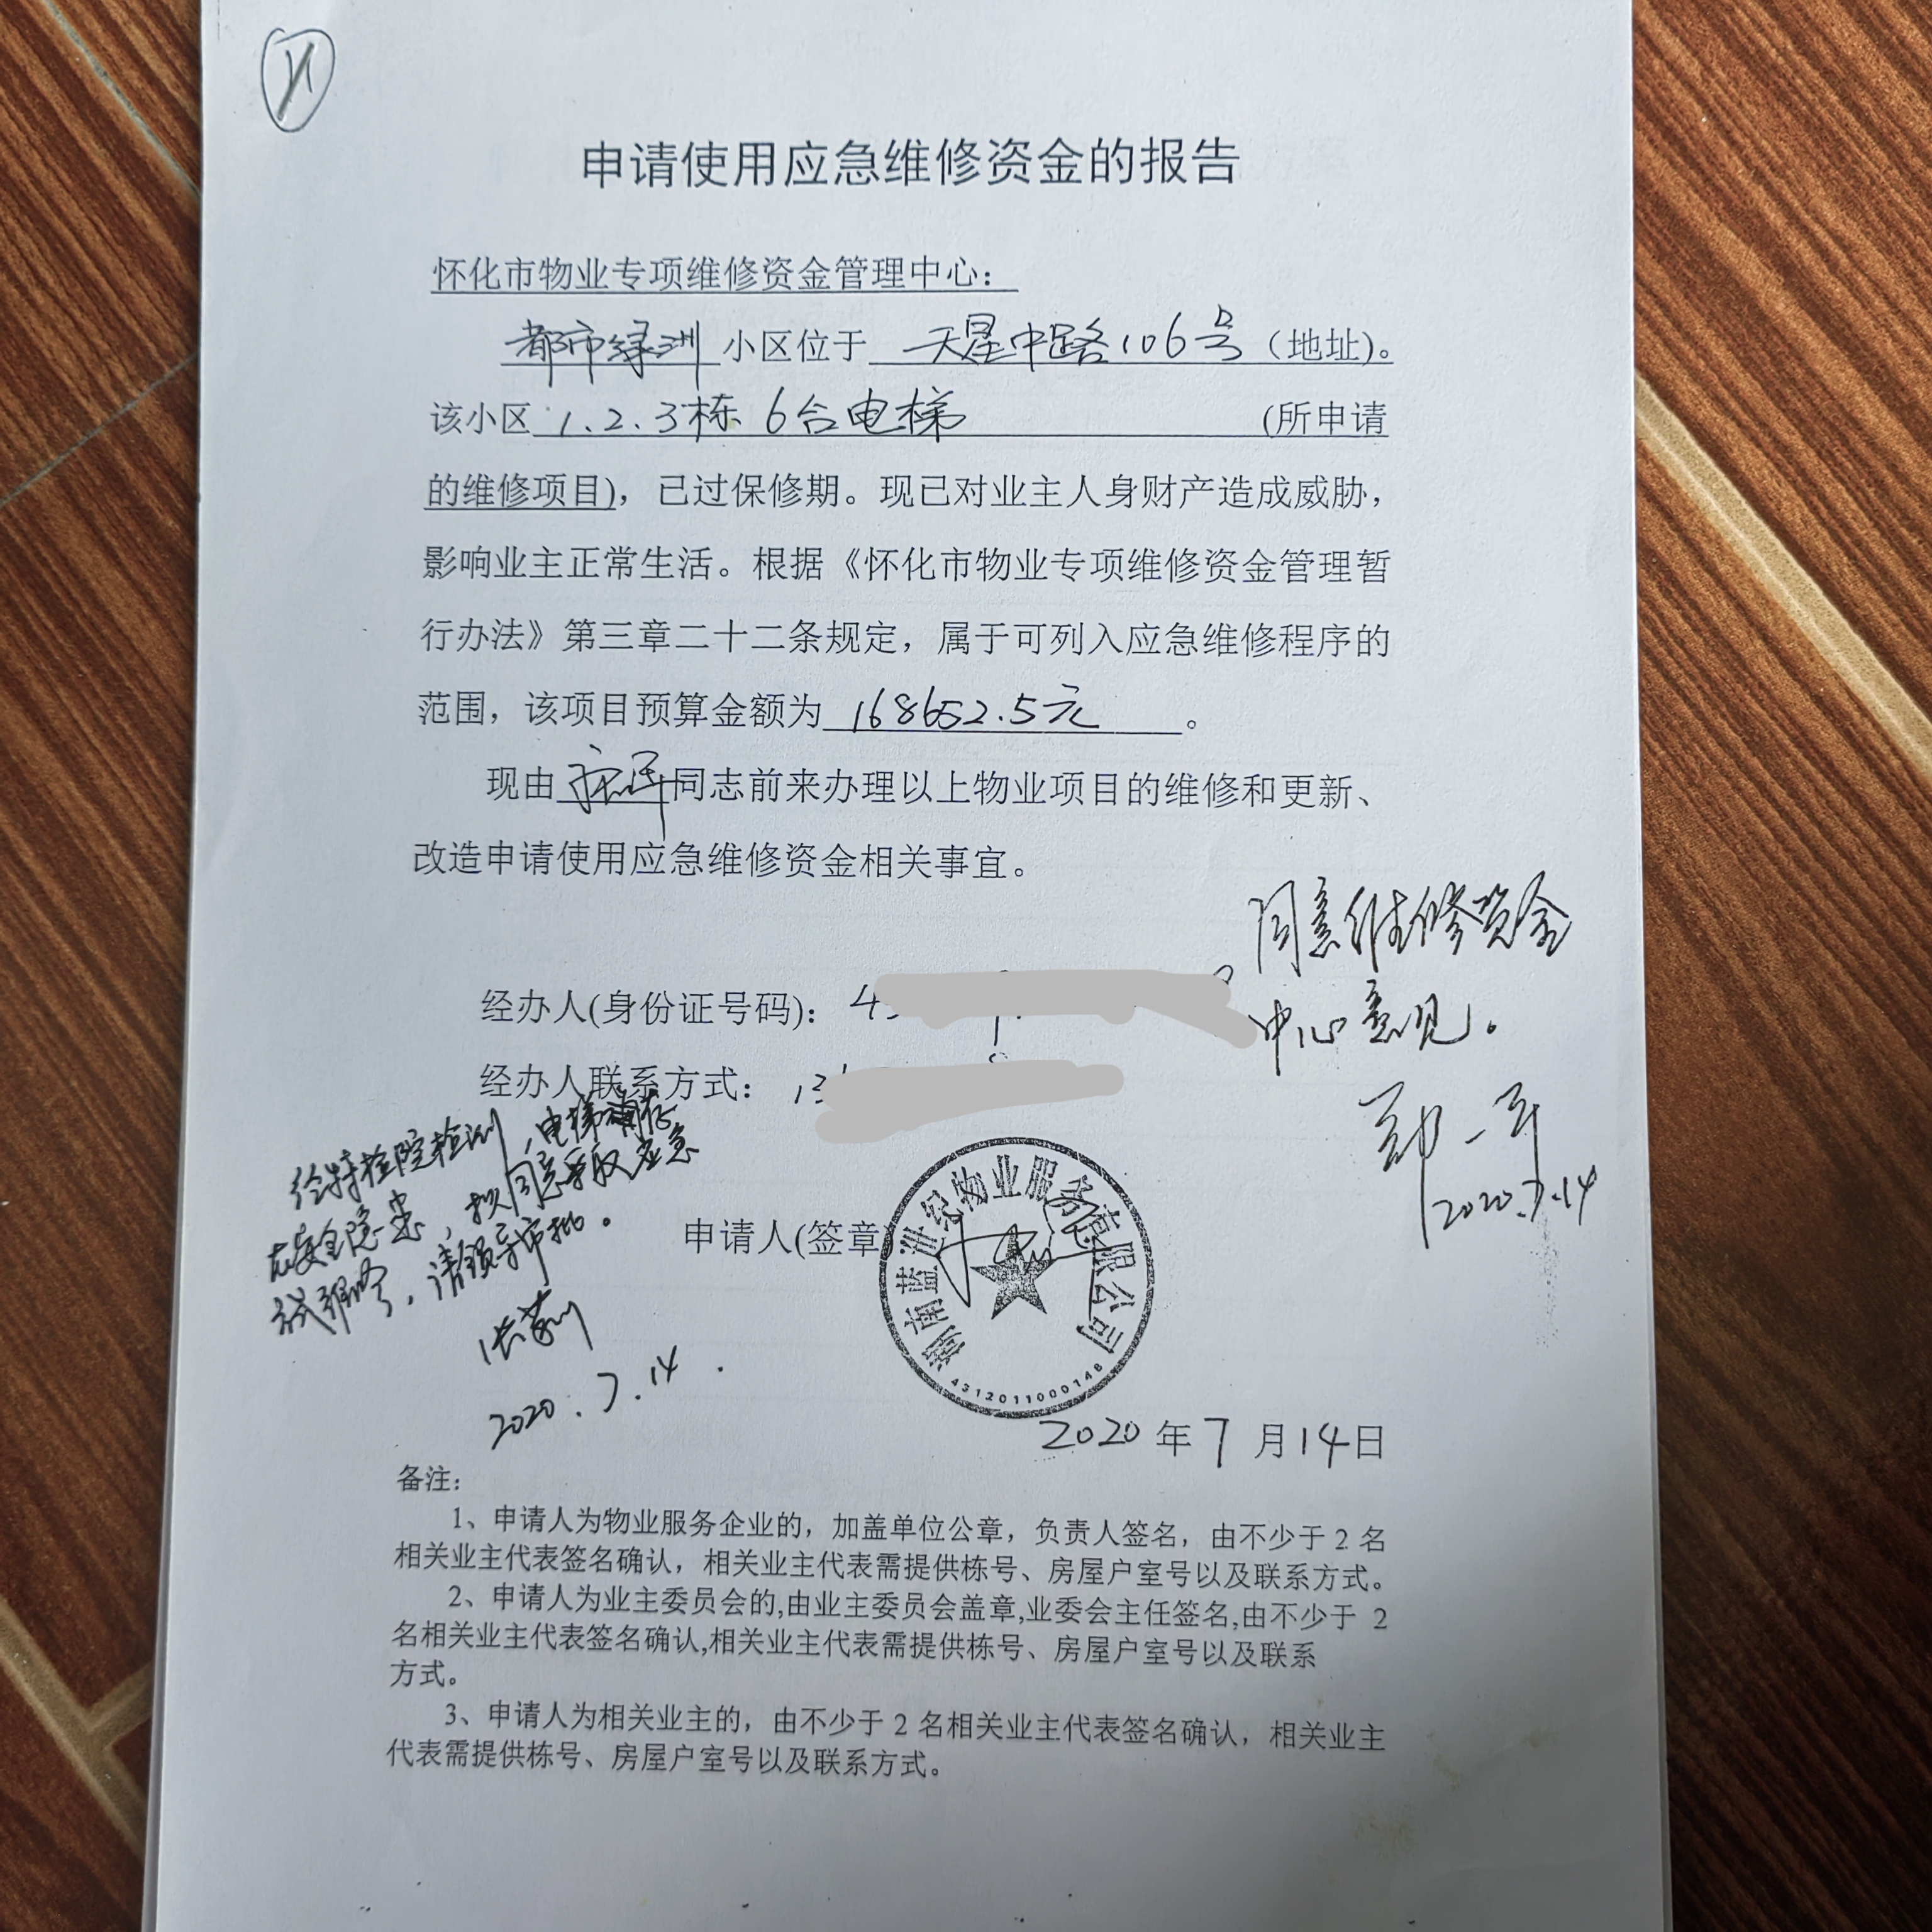 申请使用应急维修资金的报告
怀化市物业专项维修资金管理中心：
都市绿洲 小区位于 天星中路106号（地址）。
该小区 1.2.3栋 6台电梯 (所申请
的维修项目)，已过保修期。现已对业主人身财产造成威胁，
影响业主正常生活。根据《怀化市物业专项维修资金管理暂
行办法》第三章二十二条规定，属于可列入应急维修程序的
范围，该项目预算金额为 168652.5元 。
现由 同志前来办理以上物业项目的维修和更新、
改造申请使用应急维修资金相关事宜。
同意维修资金
中心意见。
2020.7.14
经办人(身份证号码)：
经办人联系方式：
经特检院检测，电梯确存
在安全隐患，拟同意采取应急
请领导审批。
2020.7.14.
申请人(签章)
湖南蓝世纪物业服务有限公司
4312011000148
2020年7月14日
备注：
1、申请人为物业服务企业的，加盖单位公章，负责人签名，由不少于2名
相关业主代表签名确认，相关业主代表需提供栋号、房屋户室号以及联系方式。
2、申请人为业主委员会的,由业主委员会盖章,业委会主任签名,由不少于 2
名相关业主代表签名确认,相关业主代表需提供栋号、房屋户室号以及联系
方式。
3、申请人为相关业主的，由不少于2名相关业主代表签名确认，相关业主
代表需提供栋号、房屋户室号以及联系方式。